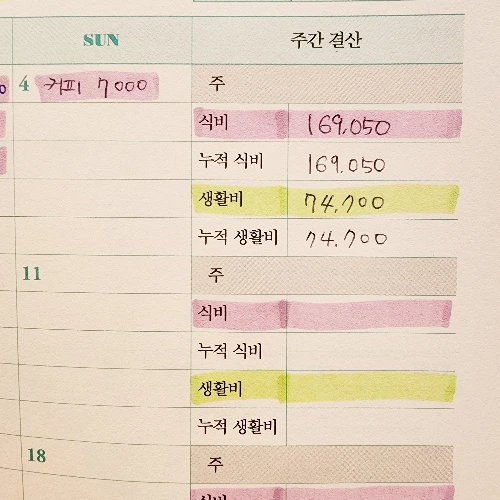 SUN 주간 결산
0 4 커피 7000 주
식비 169,050
누적 식비 169.050
생활비 74.700
누적 생활비 74.700
11 주
식비
누적 식비
생활비
누적 생활비
18 주
식비